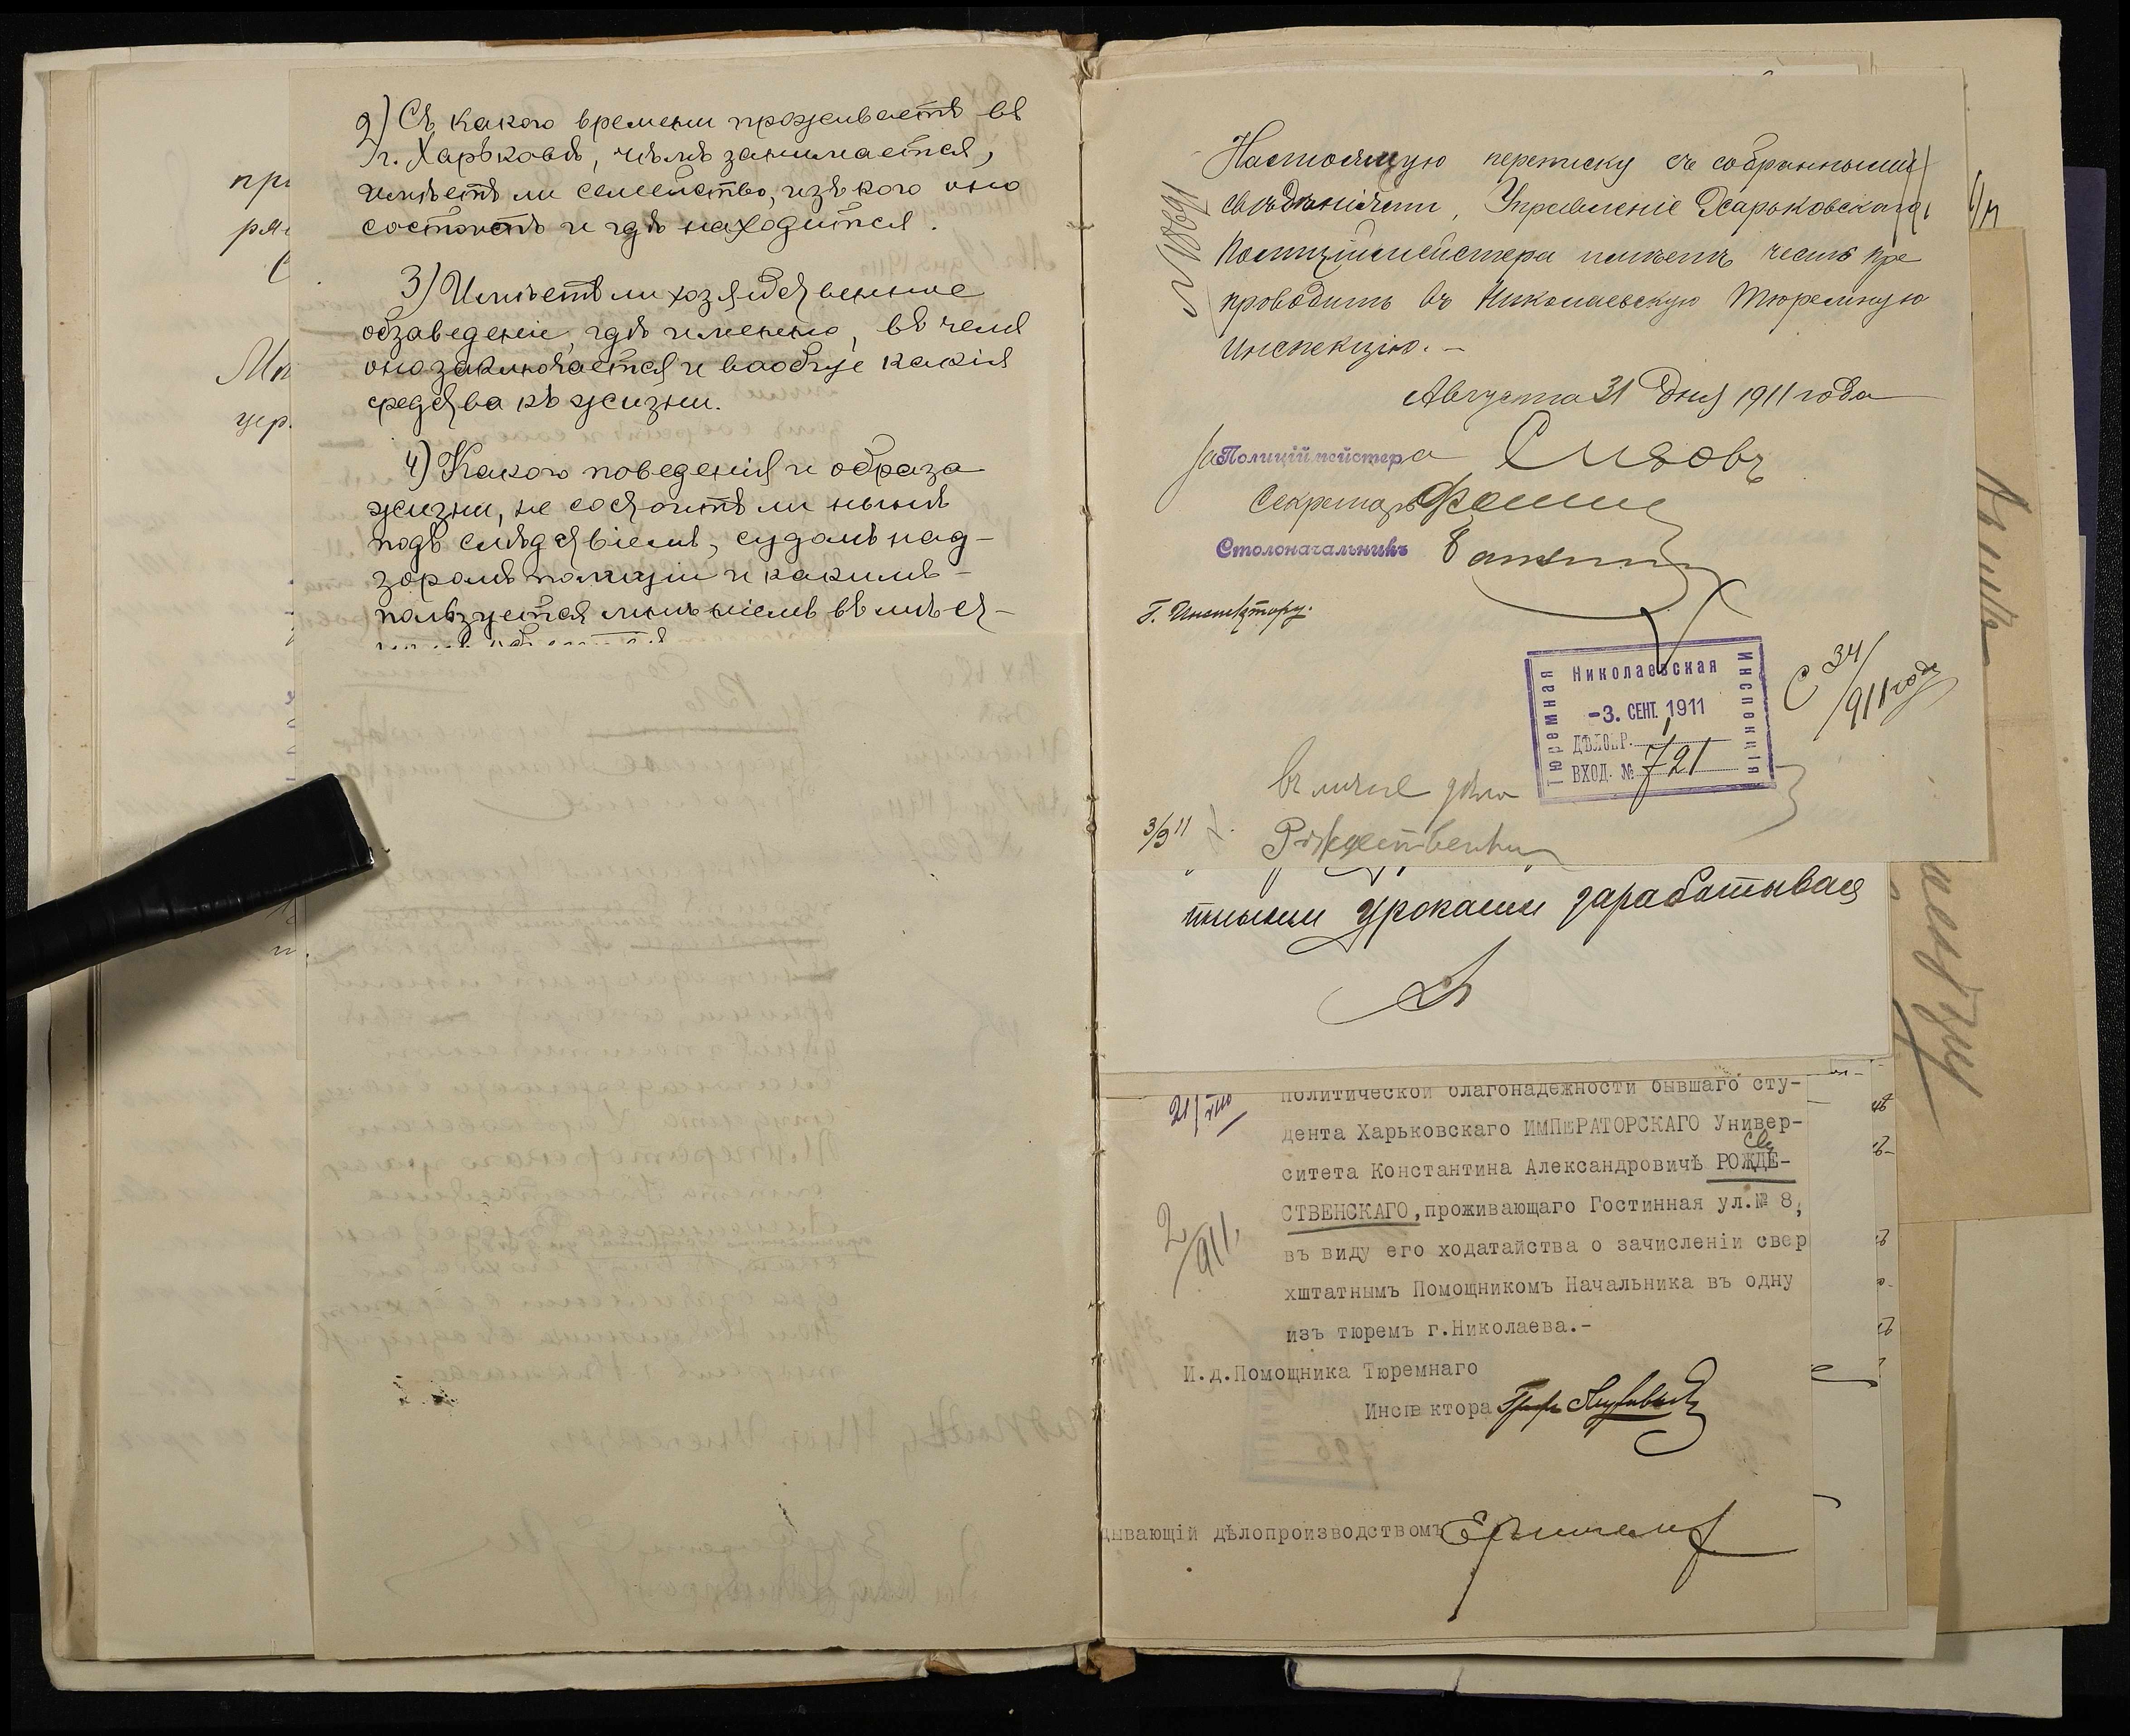 2) Съ какого времени проживаетъ въ
г. Харьковѣ, чѣмъ занимается,
имѣетъ ли семейство, изъ кого оно
состоитъ и гдѣ находится.
3) Имѣетъ ли хозяйственное
обзаведеніе, гдѣ именно, въ чемъ
оно заключается и вообще какія
средства къ жизни.
4) Какого поведенія и образа
жизни, не состоитъ ли нынѣ
подъ слѣдствіемъ, судомъ над-
зоромъ полиціи и какимъ-
пользуется мнѣніемъ въ мѣст-
при
Настоящую переписку съ собранными
свѣдѣніями, Управленіе Харьковскаго
Полиціймейстера имѣетъ честь пре
проводить въ Николаевскую Тюремную
Инспекцію.-
Августа 31 дня 1911 года
За Полиціймейстера Сизовъ
Секретарь
Столоначальникъ
Г. Инспектору.
Николаевская
Тюремная
Инспекція
-3. СЕНТ. 1911
ВХОД. № 721
С 34/911 года
въ личное дѣло
3/9 11
Рождественскаго
уроками зарабатывая
21/VIII
политической благонадежности бывшаго сту-
дента Харьковскаго ИМПЕРАТОРСКАГО Универ-
ситета Константина Александровичѣ РОЖДЕ-
СТВЕНСКАГО, проживающаго Гостинная ул. № 8,
2/911.
въ виду его ходатайства о зачисленіи свер
хштатнымъ Помощникомъ Начальника въ одну
изъ тюремъ г.Николаева.-
И.д.Помощника Тюремнаго
Инспектора
дывающій дѣлопроизводствомъ